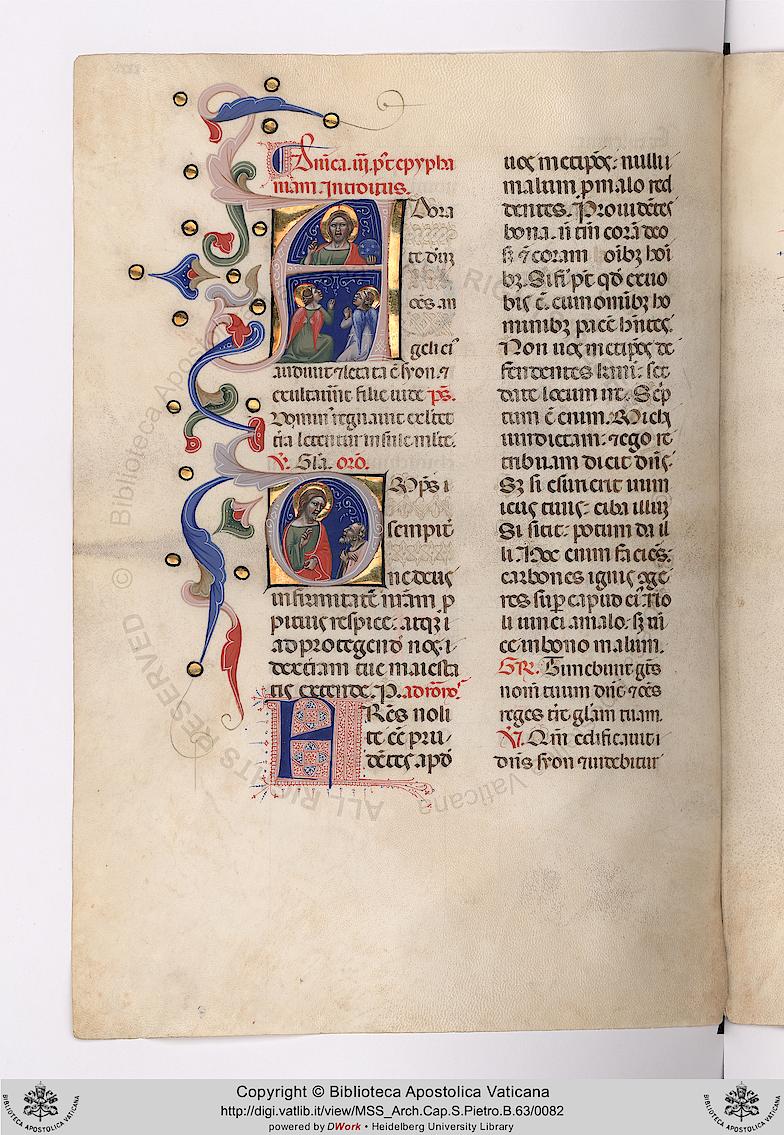 Dn̄ica. iii. p't epypha
niam. Introitus.
Adora
te dn̄z
oēs an
geli ei'
audiuit ⁊ letata ē syon. ⁊
exultauer̄t filie iude. ps.
Domin' regnauit exltet
tr̄a letentur insule mlte.
V. Gla. orō.
Omp̄s i
sempit̄
ne deus
infirmitatē nr̄am p
pitius respice. atqz i
ad protegend' nos. i
dexteram tue maiesta
tis extende. P. ad rom̄os.
Fr̄es noli
te ēē pru
dētes apd'
uos metip̄os. nulli
malum p malo red
dentes. Prouidētes
bona. ñ tm̄ corā deo
sz ⁊ coram oībz hoī
bz. Si fi'i pt qd' ex uo
bis ē. cum omībz ho
minibz pacē hn̄tes.
Non uos metip̄os de
fendentes kmi. set
date locum ire. Sc'p
tum ē enim. Michi
uindictam. ⁊ ego re
tribuam dicit dn̄s.
Sz si esurierit inim
icus tuus. ciba illum
Si sitit. potum da il
li. Hoc enim facies.
carbones ignis oge
res sup capud ei'. No
li uinci a malo. sz ui
ce in bono malum.
GR. Timebunt gēs
nom̄ tuum dn̄e ⁊ oēs
reges tr̄e glām tuam.
V. Qm̄ edificauit
dn̄s syon ⁊ uidebitur
© Biblioteca Apostolica Vaticana
ALL RIGHTS RESERVED
Copyright © Biblioteca Apostolica Vaticana
http://digi.vatlib.it/view/MSS_Arch.Cap.S.Pietro.B.63/0082
powered by DWork • Heidelberg University Library
BIBLIOTECA APOSTOLICA VATICANA
BIBLIOTECA APOSTOLICA VATICANA